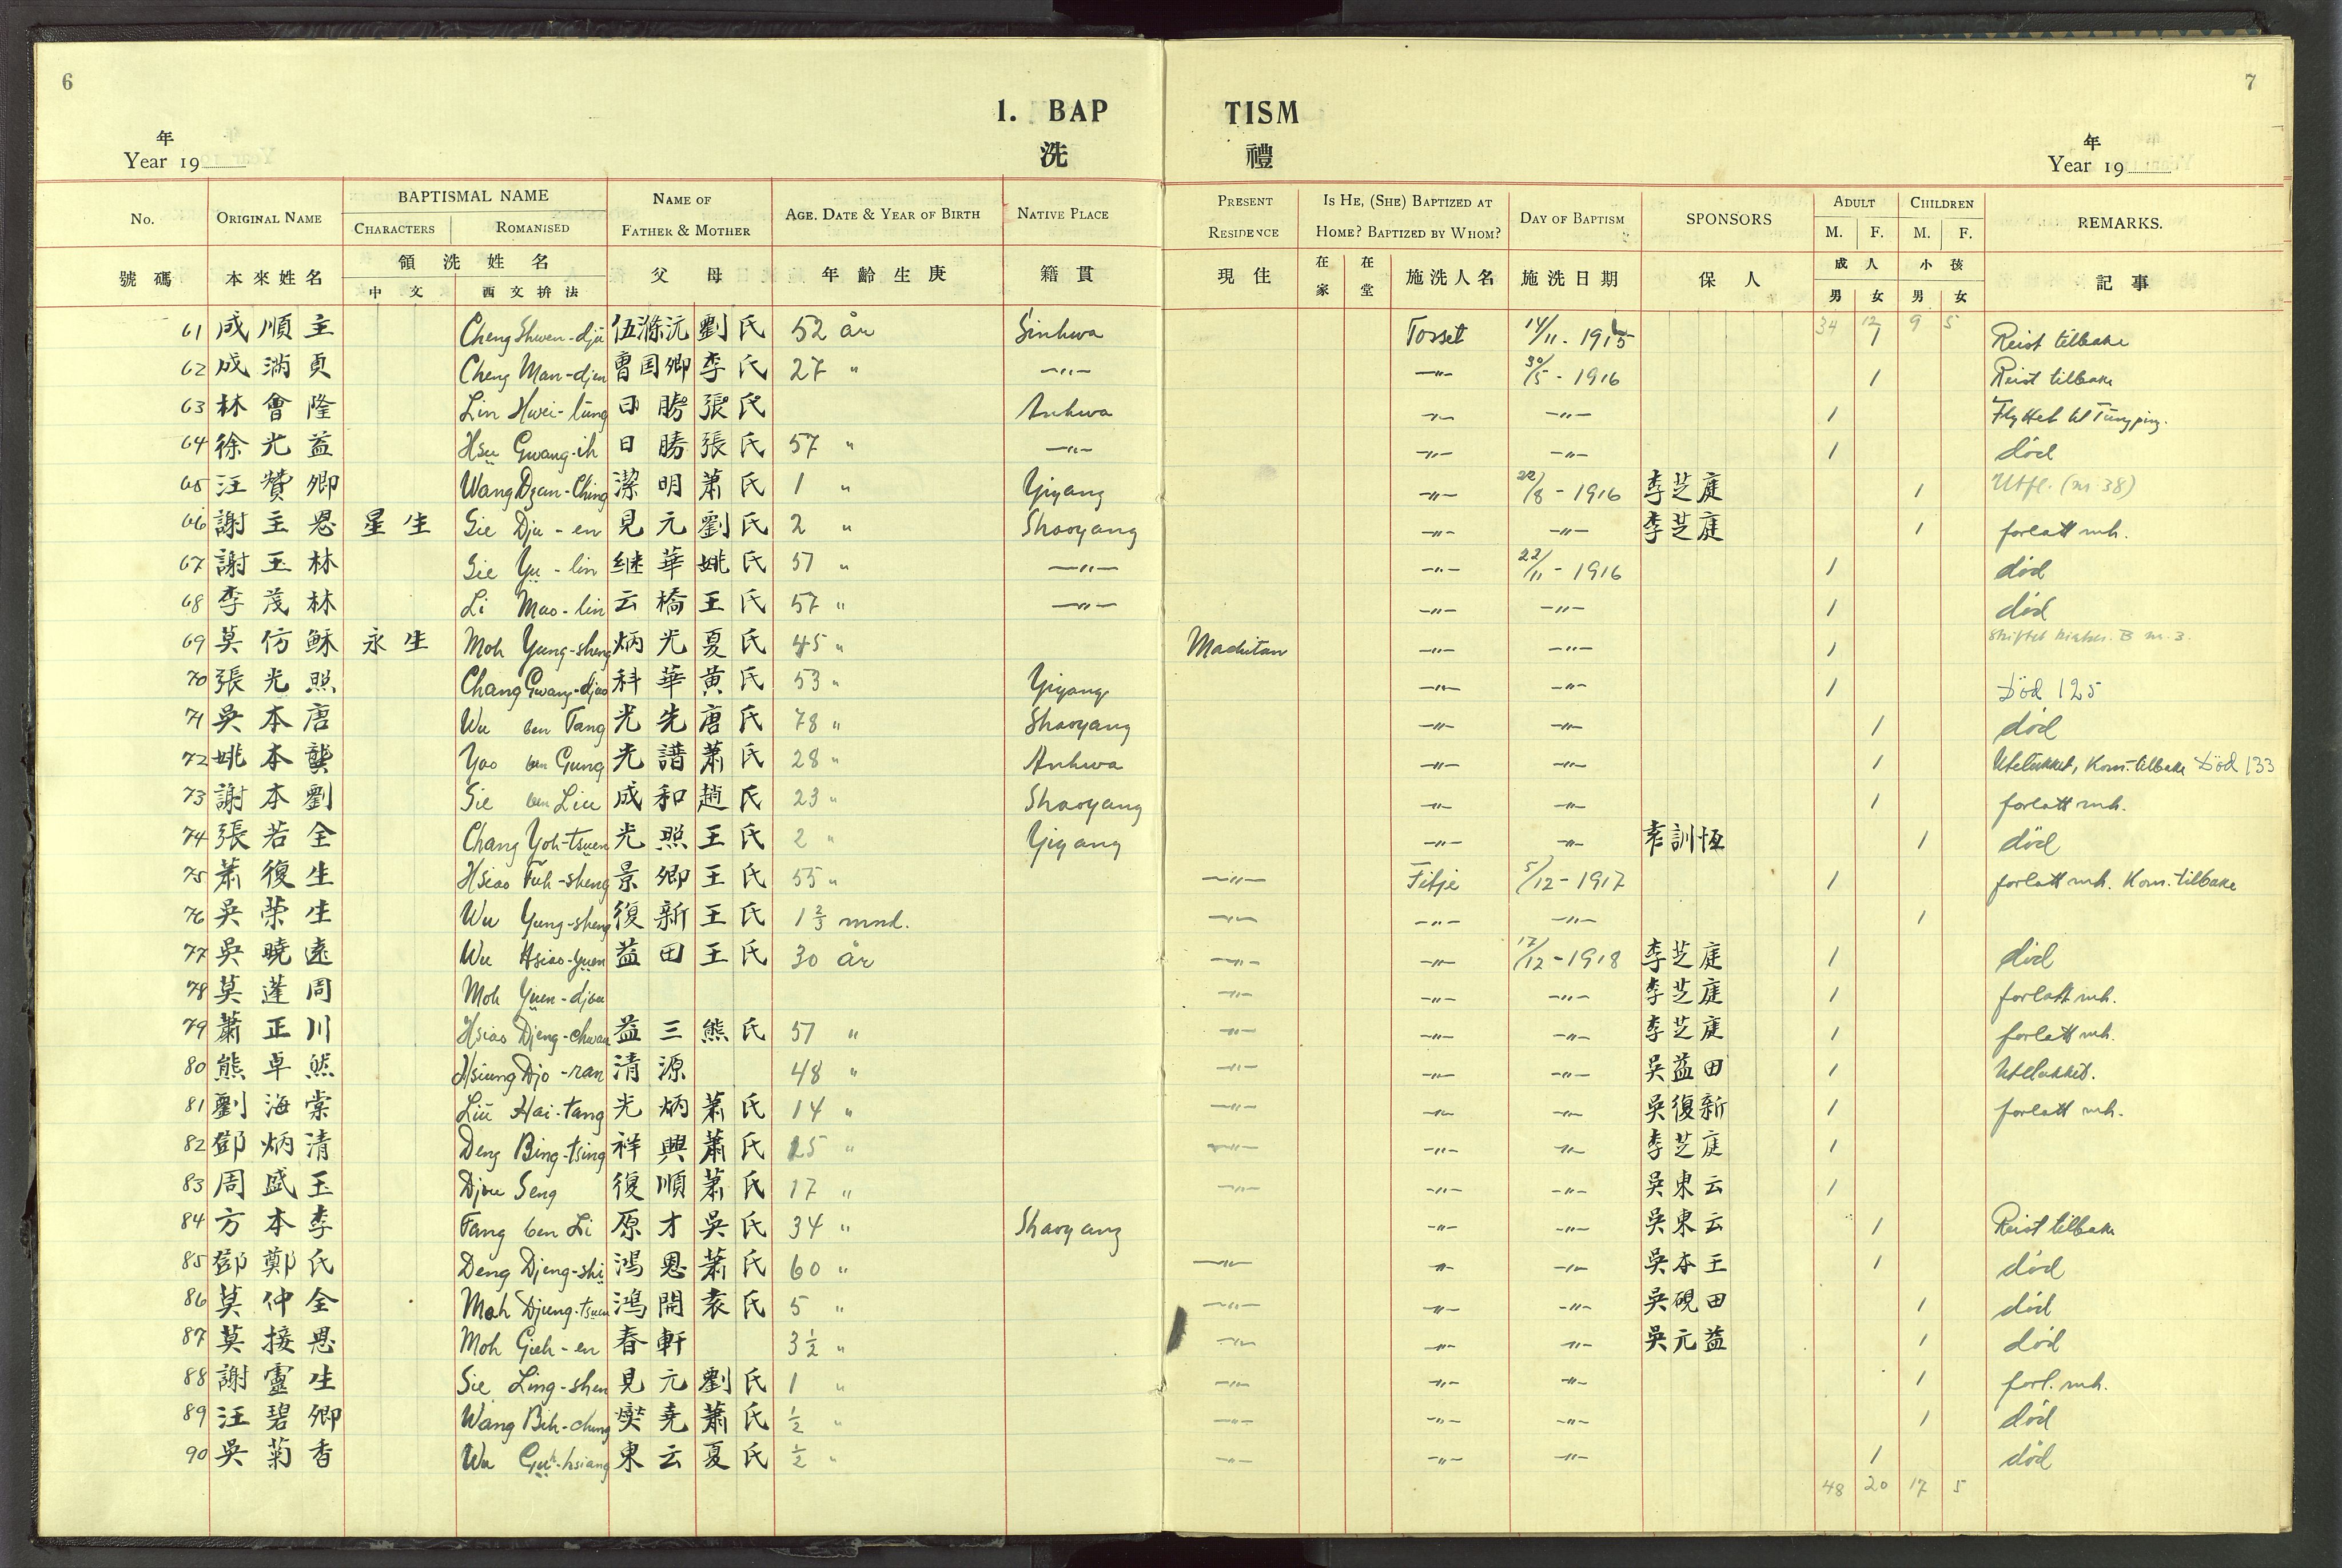 6
7
1. BAP TISM
年 洗 禮 年
Year 19 Year 19
No. ORIGINAL NAME BAPTISMAL NAME CHARACTERS ROMANISED NAME OF FATHER & MOTHER AGE. DATE & YEAR OF BIRTH NATIVE PLACE PRESENT RESIDENCE IS HE, (SHE) BAPTIZED AT HOME? BAPTIZED BY WHOM? DAY OF BAPTISM SPONSORS ADULT M. F. CHILDREN M. F. REMARKS.
號碼 本來姓名 領洗姓名 中文 西文拚法 父母 年齡生庚 籍貫 現住 在家 在堂 施洗人名 施洗日期 保人 成人 男 女 小孩 男 女 記事
34 12 9 5
61 成順主 Cheng Shwen-djü 伍滌沅 劉氏 52 år Sinhwa Tosset 14/11. 1915 1 Reist tilbake
62 成滿貞 Cheng Man-djen 曾国卿 李氏 27 " —"— —"— 30/5 - 1916 1 Reist tilbake
63 林會隆 Lin Hwei-lung 日勝 張氏 Anhwa —"— —"— 1 Flyttet til Tungping.
64 徐光益 Hsu Gwang-ih 日勝 張氏 57 " —"— —"— —"— 1 död
65 汪贊卿 Wang Dzan-Ching 潔明 蕭氏 1 " Yiyang —"— 22/8 - 1916 李芝庭 1 Utfl. (nr 38)
66 謝主恩 星生 Sie Dju-en 見元 劉氏 2 " Shaoyang —"— —"— 李芝庭 1 forlatt mh.
67 謝玉林 Sie Yu-lin 继華 姚氏 57 " —"— —"— 22/11 - 1916 1 död
68 李茂林 Li Mao-lin 云橋 王氏 57 " —"— —"— —"— 1 död
69 莫仿穌 永生 Moh Yung-sheng 炳光 夏氏 45 " Machitan —"— —"— 1
70 張光照 Chang Gwang-djao 科華 黄氏 53 " Yiyang —"— —"— 1 Död 125
71 吳本唐 Wu ben Tang 光先 唐氏 78 " Shaoyang —"— —"— 1 död
72 姚本龔 Yao ben Gung 光譜 蕭氏 28 " Anhwa —"— —"— 1 Utelukket, Kom. tilbake Död 133
73 謝本劉 Sie ben Liu 成和 趙氏 23 " Shaoyang —"— —"— 1 forlatt mh.
74 張若全 Chang Yoh-tsuen 光照 王氏 2 " Yiyang —"— —"— 訓恆 1 död
75 蕭復生 Hsiao Fuh-sheng 景卿 王氏 55 " —"— Fitje 5/12 - 1917 1 forlatt mh. Kom. tilbake
76 吳荣生 Wu Yung-sheng 復新 王氏 1 2/3 mnd. —"— —"— —"— 1
77 吳曉遠 Wu Hsiao-yuen 益田 王氏 30 år —"— —"— 17/12 - 1918 李芝庭 1 död
78 莫蓮周 Moh Yuen-djou —"— —"— —"— 李芝庭 1 forlatt mh.
79 蕭正川 Hsiao Djeng-chwan 益三 熊氏 57 " —"— —"— —"— 李芝庭 1 forlatt mh.
80 熊卓然 Hsiung Djo-ran 清源 48 " —"— —"— —"— 吳益田 1 Utelukket.
81 劉海棠 Liu Hai-tang 光炳 蕭氏 14 " —"— —"— —"— 吳復新 1 forlatt mh.
82 鄧炳清 Deng Bing-tsing 祥興 蕭氏 25 " —"— —"— —"— 李芝庭 1
83 周盛玉 Djou Seng 復順 蕭氏 17 " —"— —"— —"— 吳東云 1
84 方本李 Fang ben Li 原才 吳氏 34 " Shaoyang —"— —"— 吳東云 1 Reist tilbake
85 鄧鄭氏 Deng Djeng-shi 鴻恩 蕭氏 60 " —"— —"— —"— 吳本王 1 död
86 莫仲全 Moh Djung-tsuen 鴻開 袁氏 5 " —"— —"— —"— 吳硯田 1 död
87 莫接恩 Moh Gieh-en 春軒 3 1/2 " —"— —"— —"— 吳元益 1 död
88 謝靈生 Sie Ling-shen 見元 劉氏 1 " —"— —"— —"— 1 forl. mh.
89 汪碧卿 Wang Bih-ching 堯 蕭氏 1/2 " —"— —"— —"— 1 död
90 吳菊香 Wu Guh-hsiang 東云 夏氏 1/2 " —"— —"— —"— 1 död
48 20 17 5